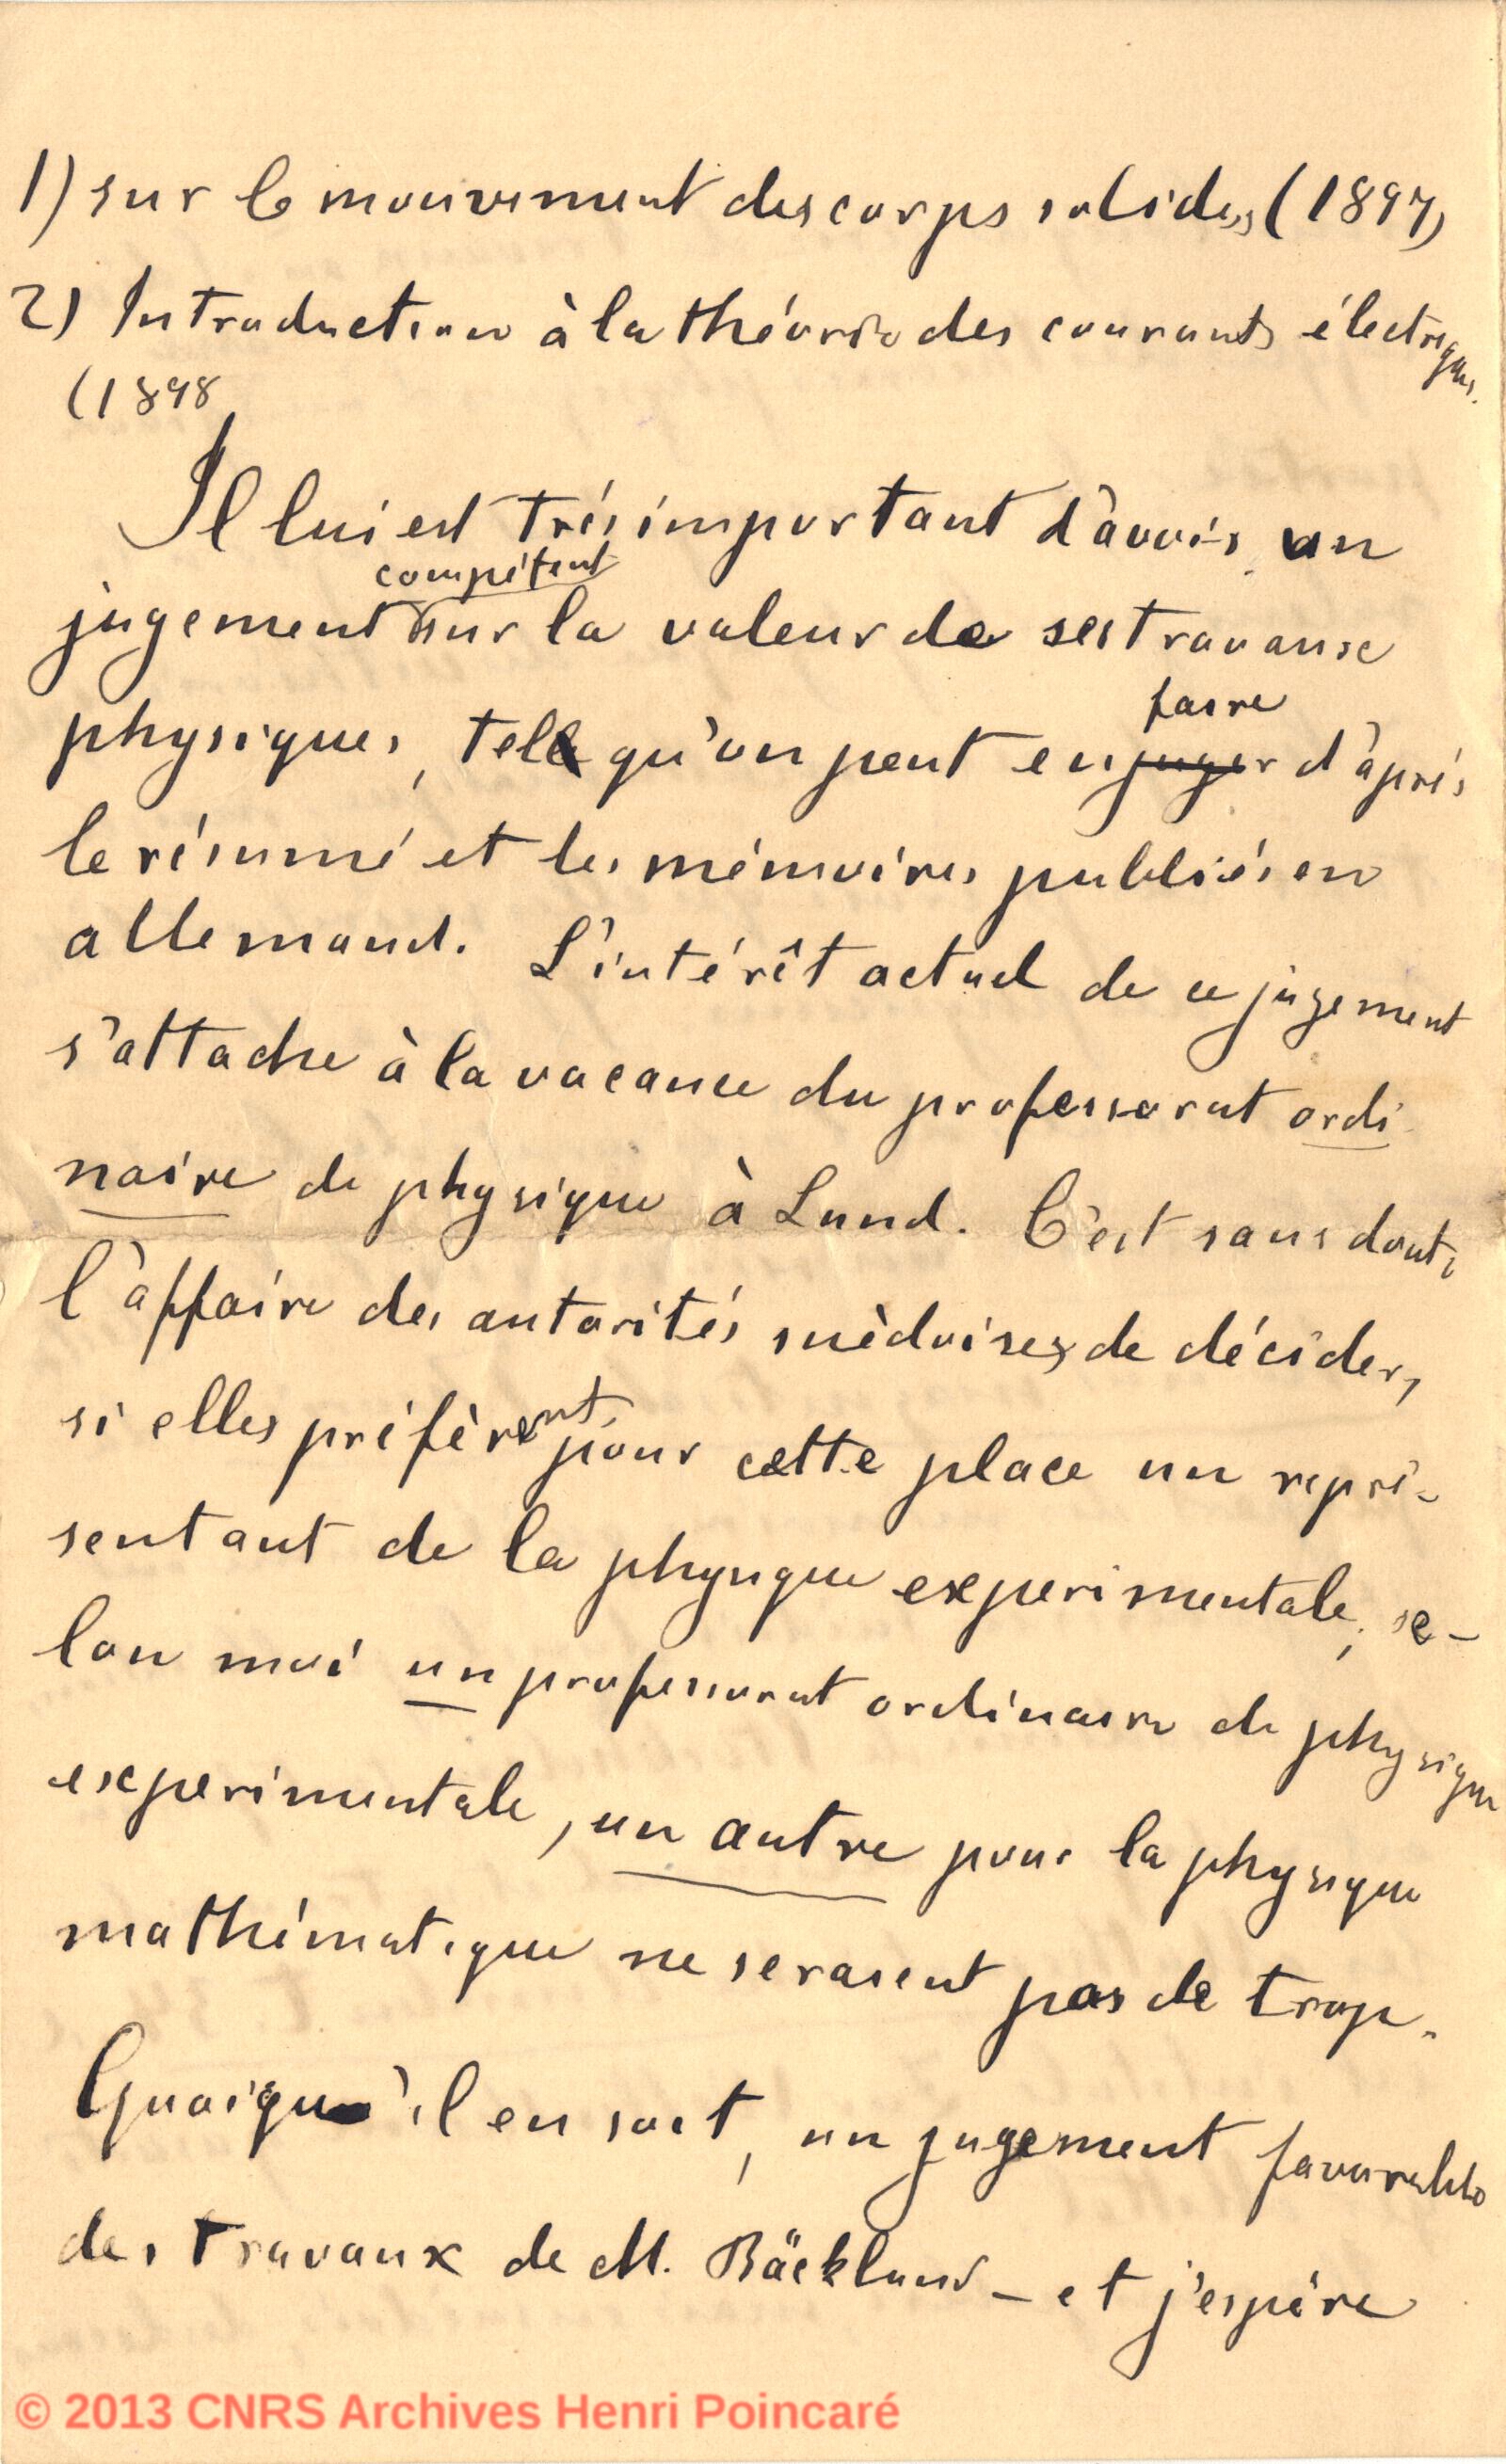 1) sur le mouvement des corps solides (1897)
2) Introduction à la théorie des courants électriques.
(1898
Il lui est très important d'avoir un
compétent
jugement sur la valeur de ses travaux
faire
physiques, tel qu'on peut en juger d'après
le résumé et les mémoires publiés en
allemand. L'intérêt actuel de ce jugement
s'attache à la vacance du professorat ordi
naire de physique à Lund. C'est sans doute
l'affaire des autorités suèdoises de décider,
si elles préfèrent pour cette place un repré-
sentant de la physique experimentale, se-
lon moi un professorat ordinaire de physique
experimentale, un autre pour la physique
mathématique ne seraient pas de trop.
Quoiqu'il en soit, un jugement favorable
des travaux de M. Bäcklund – et j'espère
© 2013 CNRS Archives Henri Poincaré